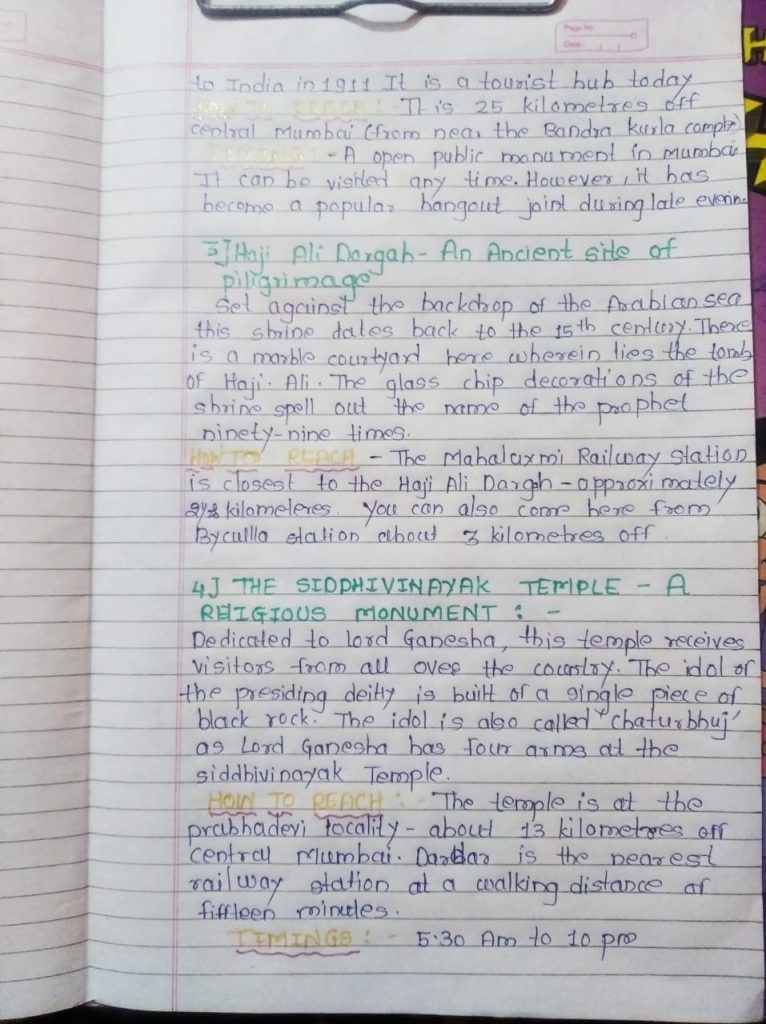 Page No.
Date: / /
to India in 1911 It is a tourist hub today
HOW TO REACH :- It is 25 kilometres off
central Mumbai (from near the Bandra kurla complx)
TIMINGS :- A open public monument in Mumbai
It can be visited any time. However, it has
become a popular hangout joint during late evenin
3] Haji Ali Dargah - An Ancient site of
piligrimage
Set against the backdrop of the Arabian sea
this shrine dates back to the 15th century. There
is a marble courtyard here wherein lies the tomb
of Haji. Ali. The glass chip decorations of the
shrine spell out the name of the prophet
ninety-nine times.
HOW TO REACH - The Mahalaxmi Railway station
is closest to the Haji Ali Dargh - approximately
kilometeres. You can also come here from
Byculla station about 3 kilometres off
4] THE SIDDHIVINAYAK TEMPLE - A
RELIGIOUS MONUMENT : -
Dedicated to lord Ganesha, this temple receives
visitors from all over the country. The idol of
the presiding deity is built of a single piece of
black rock. The idol is also called 'chaturbhuj'
as Lord Ganesha has four arms at the
siddhivinayak Temple.
HOW TO REACH :- The temple is at the
prabhadevi locality - about 13 kilometres off
central Mumbai. Dardar is the nearest
railway station at a walking distance of
fiffteen minutes.
TIMINGS :- 5:30 Am to 10 pm